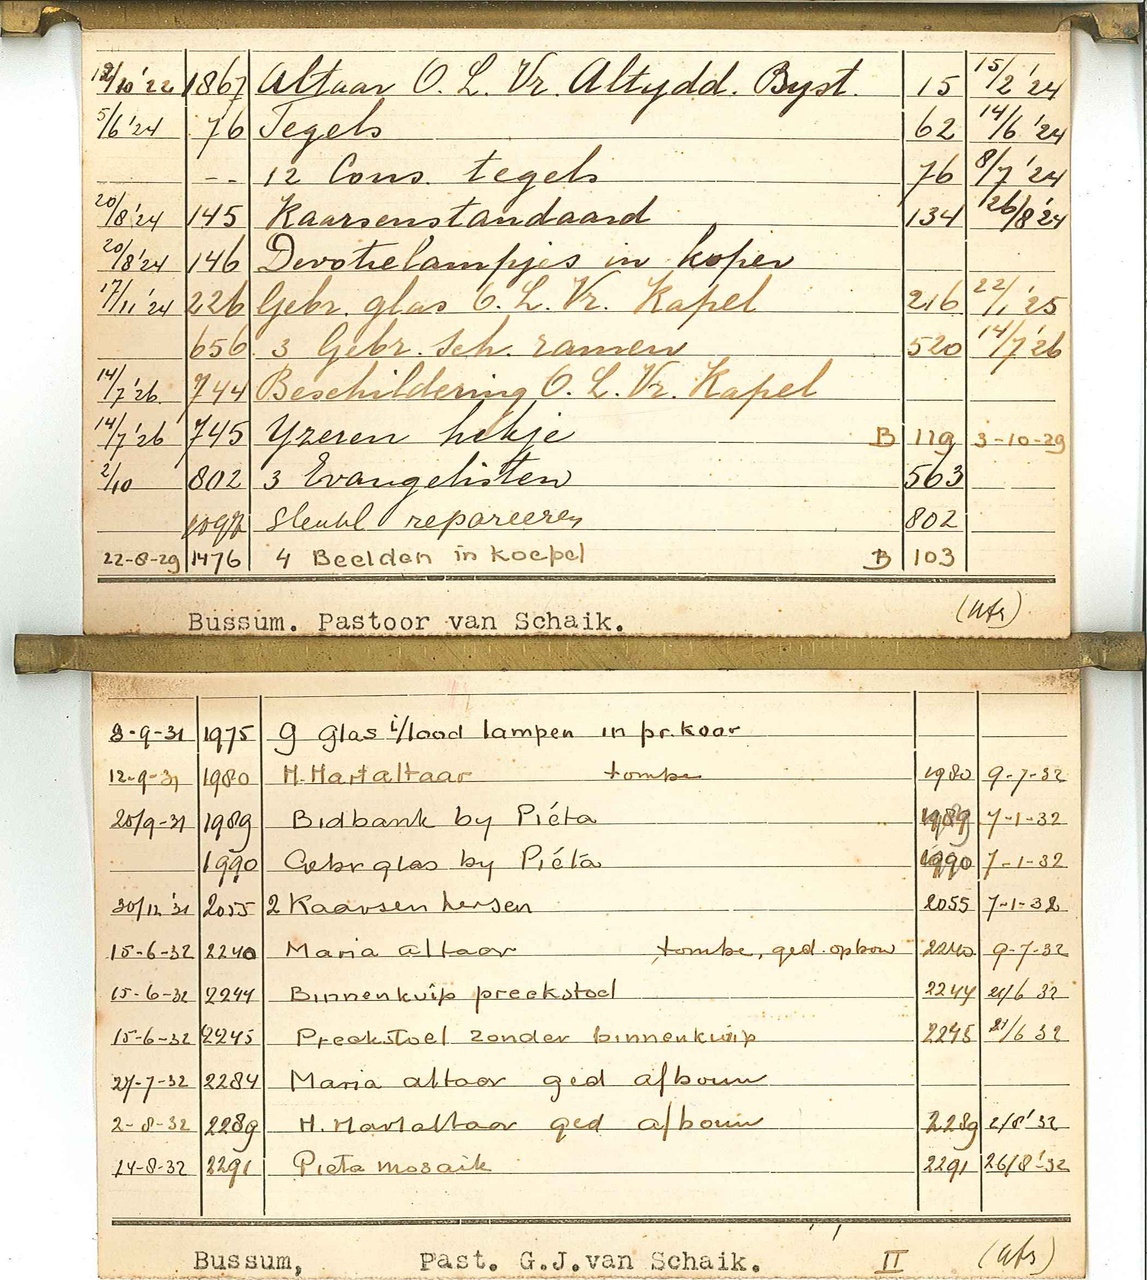 12/10 '22 1867 Altaar O. L. Vr. Altydd. Byst. 15 15/2 '24
5/6 '24 76 Tegels 62 14/6 '24
-- 12 Cons. tegels 76 8/7 '24
20/8 '24 145 Kaarsenstandaard 134 26/8 '24
20/8 '24 146 Devotielampjes in koper
17/11 '24 226 Gebr. glas O. L. Vr. Kapel 216 22/1 '25
656 3 Gebr. sch. ramen 520 14/7 '26
14/7 '26. 744 Beschildering O. L. Vr. Kapel
14/7 '26 745 Yzeren hekje B 119 3-10-29
2/10 802 3 Evangelisten 563
Sleutel repareeren 802
22-8-29 1476 4 Beelden in koepel B 103
Bussum. Pastoor van Schaik.
8-9-31 1975 9 glas i/lood lampen in pr. koor
12-9-31 1980 H. Hartaltaar tombe 1980 9-7-32
1989 Bidbank by Piéta 1989 7-1-32
1990 Gebr glas by Piéta 1990 7-1-32
30/12 '31 2055 2 Kaarsen kersen 2055 7-1-32
15-6-32 2240 Maria altaar tombe, ged. opbouw 2240 9-7-32
15-6-32 2244 Binnenkuip preekstoel 2244 21/6 32
15-6-32 2245 Preekstoel zonder binnenkuip 2245 21/6 32
27-7-32 2284 Maria altaar ged afbouw
2-8-32 2289 H. Hartaltaar ged afbouw 2289 2/8 '32
24-8-32 2291 Pieta mosaik 2291 26/8 '32
Bussum, Past. G.J.van Schaik. II